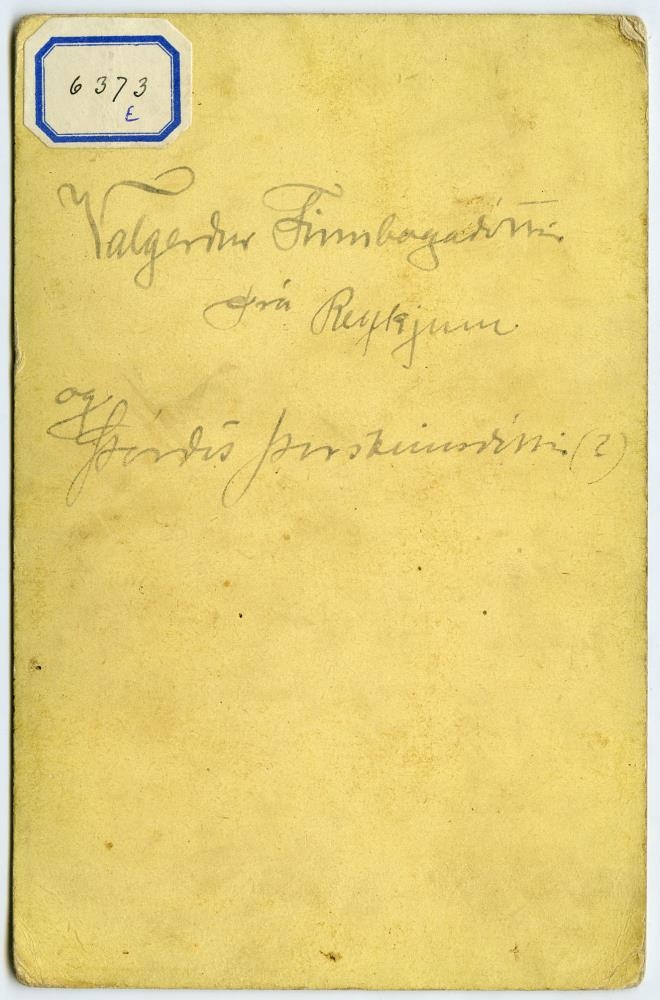 6373
E
Valgerdur Finnbogadóttir
frá Reykjum
og
Þórdís Þorsteinsdóttir (?)